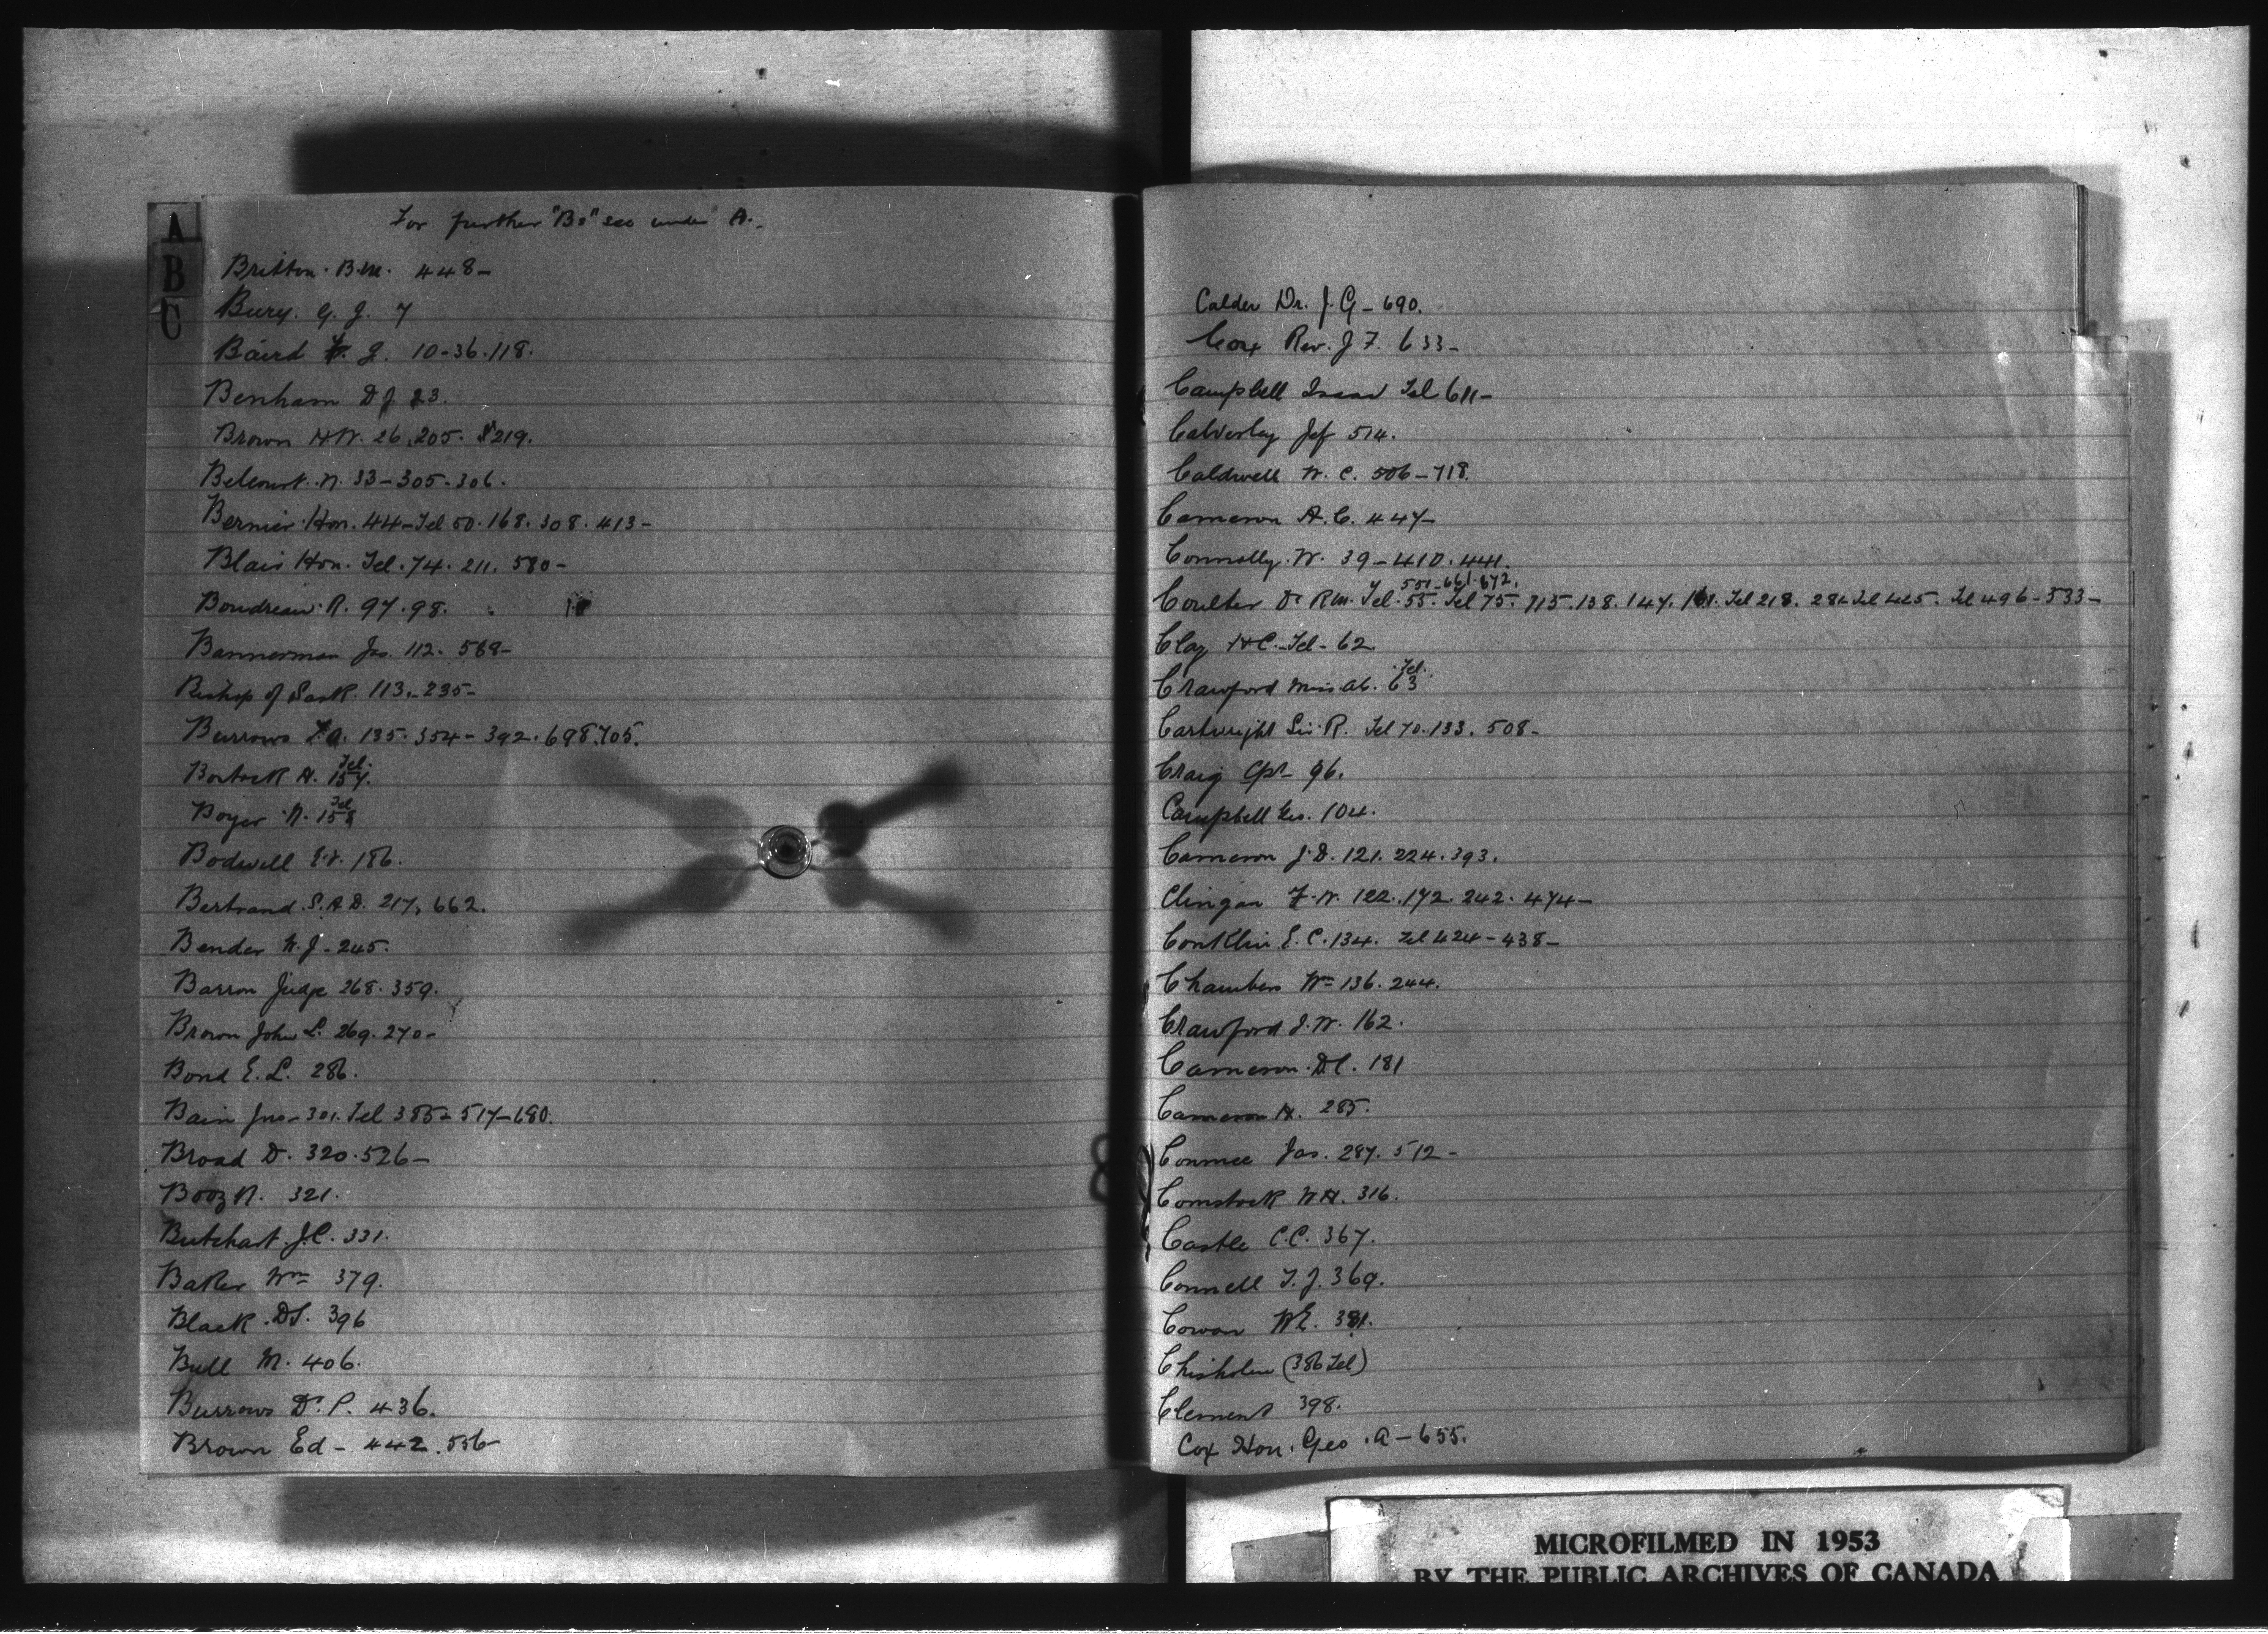 A
B
C
For further "Bs" see under A.
Britton. B.M. 448-
Bury. G. J. 7
Baird J. 10-36.118.
Benham D J 23.
Brown H W. 26.205. 219.
Belcourt. N. 33-305-306.
Bernier. Hon. 44-Tel 50.168.308.413-
Blair Hon. Tel. 74. 211. 580-
Boudreau. R. 97.98.
Bannerman Jas. 112. 569-
Bishop of Sask. 113.-235-
Burrows T.A. 135.354-392.698.705.
Bostock H. Tel. 157.
Boyer A. Tel 158
Bodwell E.V. 186.
Bertrand. S.A.D. 217, 662.
Bender W.J-245.
Barron Judge 268.359.
Brown John L. 269.270-
Bond E.L. 286.
Bain Jno-301. Tel 385-517-680.
Broad D. 320.526-
Booz N. 321.
Butchart. J.C. 331.
Baker Wm 379.
Black. DS. 396
Bull M. 406.
Burrows D.P. 436.
Brown Ed-442.556-
Calder Dr. J. G-690.
Cox Rev. J F. 633-
Campbell Isaac Tel 611-
Calverley Jef 514.
Caldwell W. C. 506-718.
Cameron A.C. 447-
Connolly. W. 39-410.441.
501-661.672.
Coulter Dr R.M. Tel. 55. Tel 75. 115.138.147. 161. Tel 218. 284 Tel 425. Tel 496-533-
Clay H C.-Tel-62.
Crawford Miss Ab. Tel. 63
Cartwright Sir R. Tel 70.133. 508-
Craig Cpt 96.
Campbell Geo. 104.
Cameron J.D. 121. 224.393.
Clingan F.W. 122.172.242.474-
Conklin E.C.134. Tel 424-438-
Chambers Wm 136.244.
Crawford J.W. 162.
Cameron. D.C. 181
Cameron H. 285.
Conmee Jas. 287. 512-
Comstock W H. 316.
Castle C.C. 367.
Connell T.J. 369.
Cowan WE. 381.
Chisholm (386 Tel)
Clement 398.
Cox Hon. Geo. A-655.
MICROFILMED IN 1953
BY THE PUBLIC ARCHIVES OF CANADA